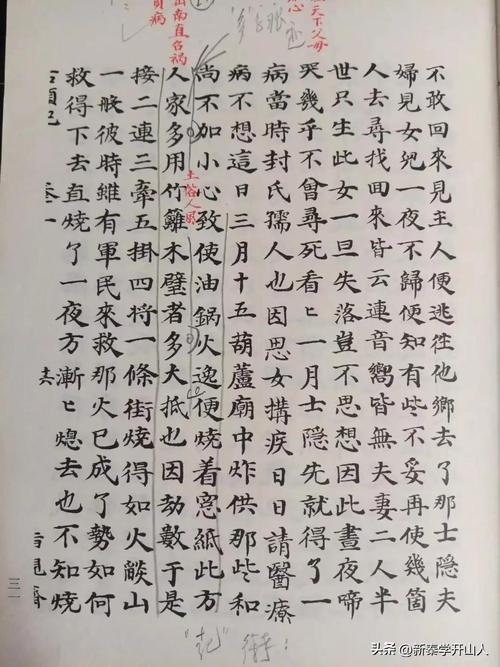 天下父母
心
出南直召禍
不敢回來見主人便逃徃他鄉去了那士隱夫
婦見女兒一夜不歸便知有些不妥再使幾箇
人去尋找回來皆云連音嚮皆無夫妻二人半
世只生此女一旦失落豈不思想因此晝夜啼
哭幾乎不曾尋死看ヒ一月士隱先就得了一
病當時封氏孺人也因思女搆疾日日請醫療
病不想這日三月十五葫蘆廟中炸供那些和
尚不加小心致使油鍋火逸便燒着窓紙此方
土俗人風
人家多用竹籬木壁者多大抵也因劫數于是
接二連三牽五掛四将一條街燒得如火燄山
一般彼時雖有軍民來救那火已成了勢如何
救得下去直燒了一夜方漸ヒ熄去也不知燒
石頭記 卷一
三一
头条 @新泰学开山人